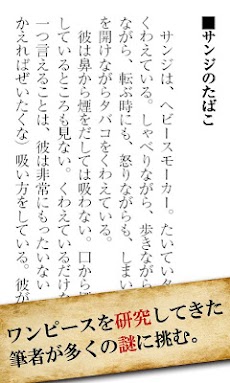 ■サンジのたばこ
サンジは、ヘビースモーカー。たいていタ
くわえている。しゃべりながら、歩きながら
ながら、転ぶ時にも、怒りながらも、しまい
を開けながらタバコをくわえている。
彼は鼻から煙をだしては吸わない。口から
しているところも見ない。くわえているだけな
一つ言えることは、彼は非常にもったいない
かえればぜいたくな）吸い方をしている。彼が
ワンピースを研究してきた
筆者が多くの謎に挑む。